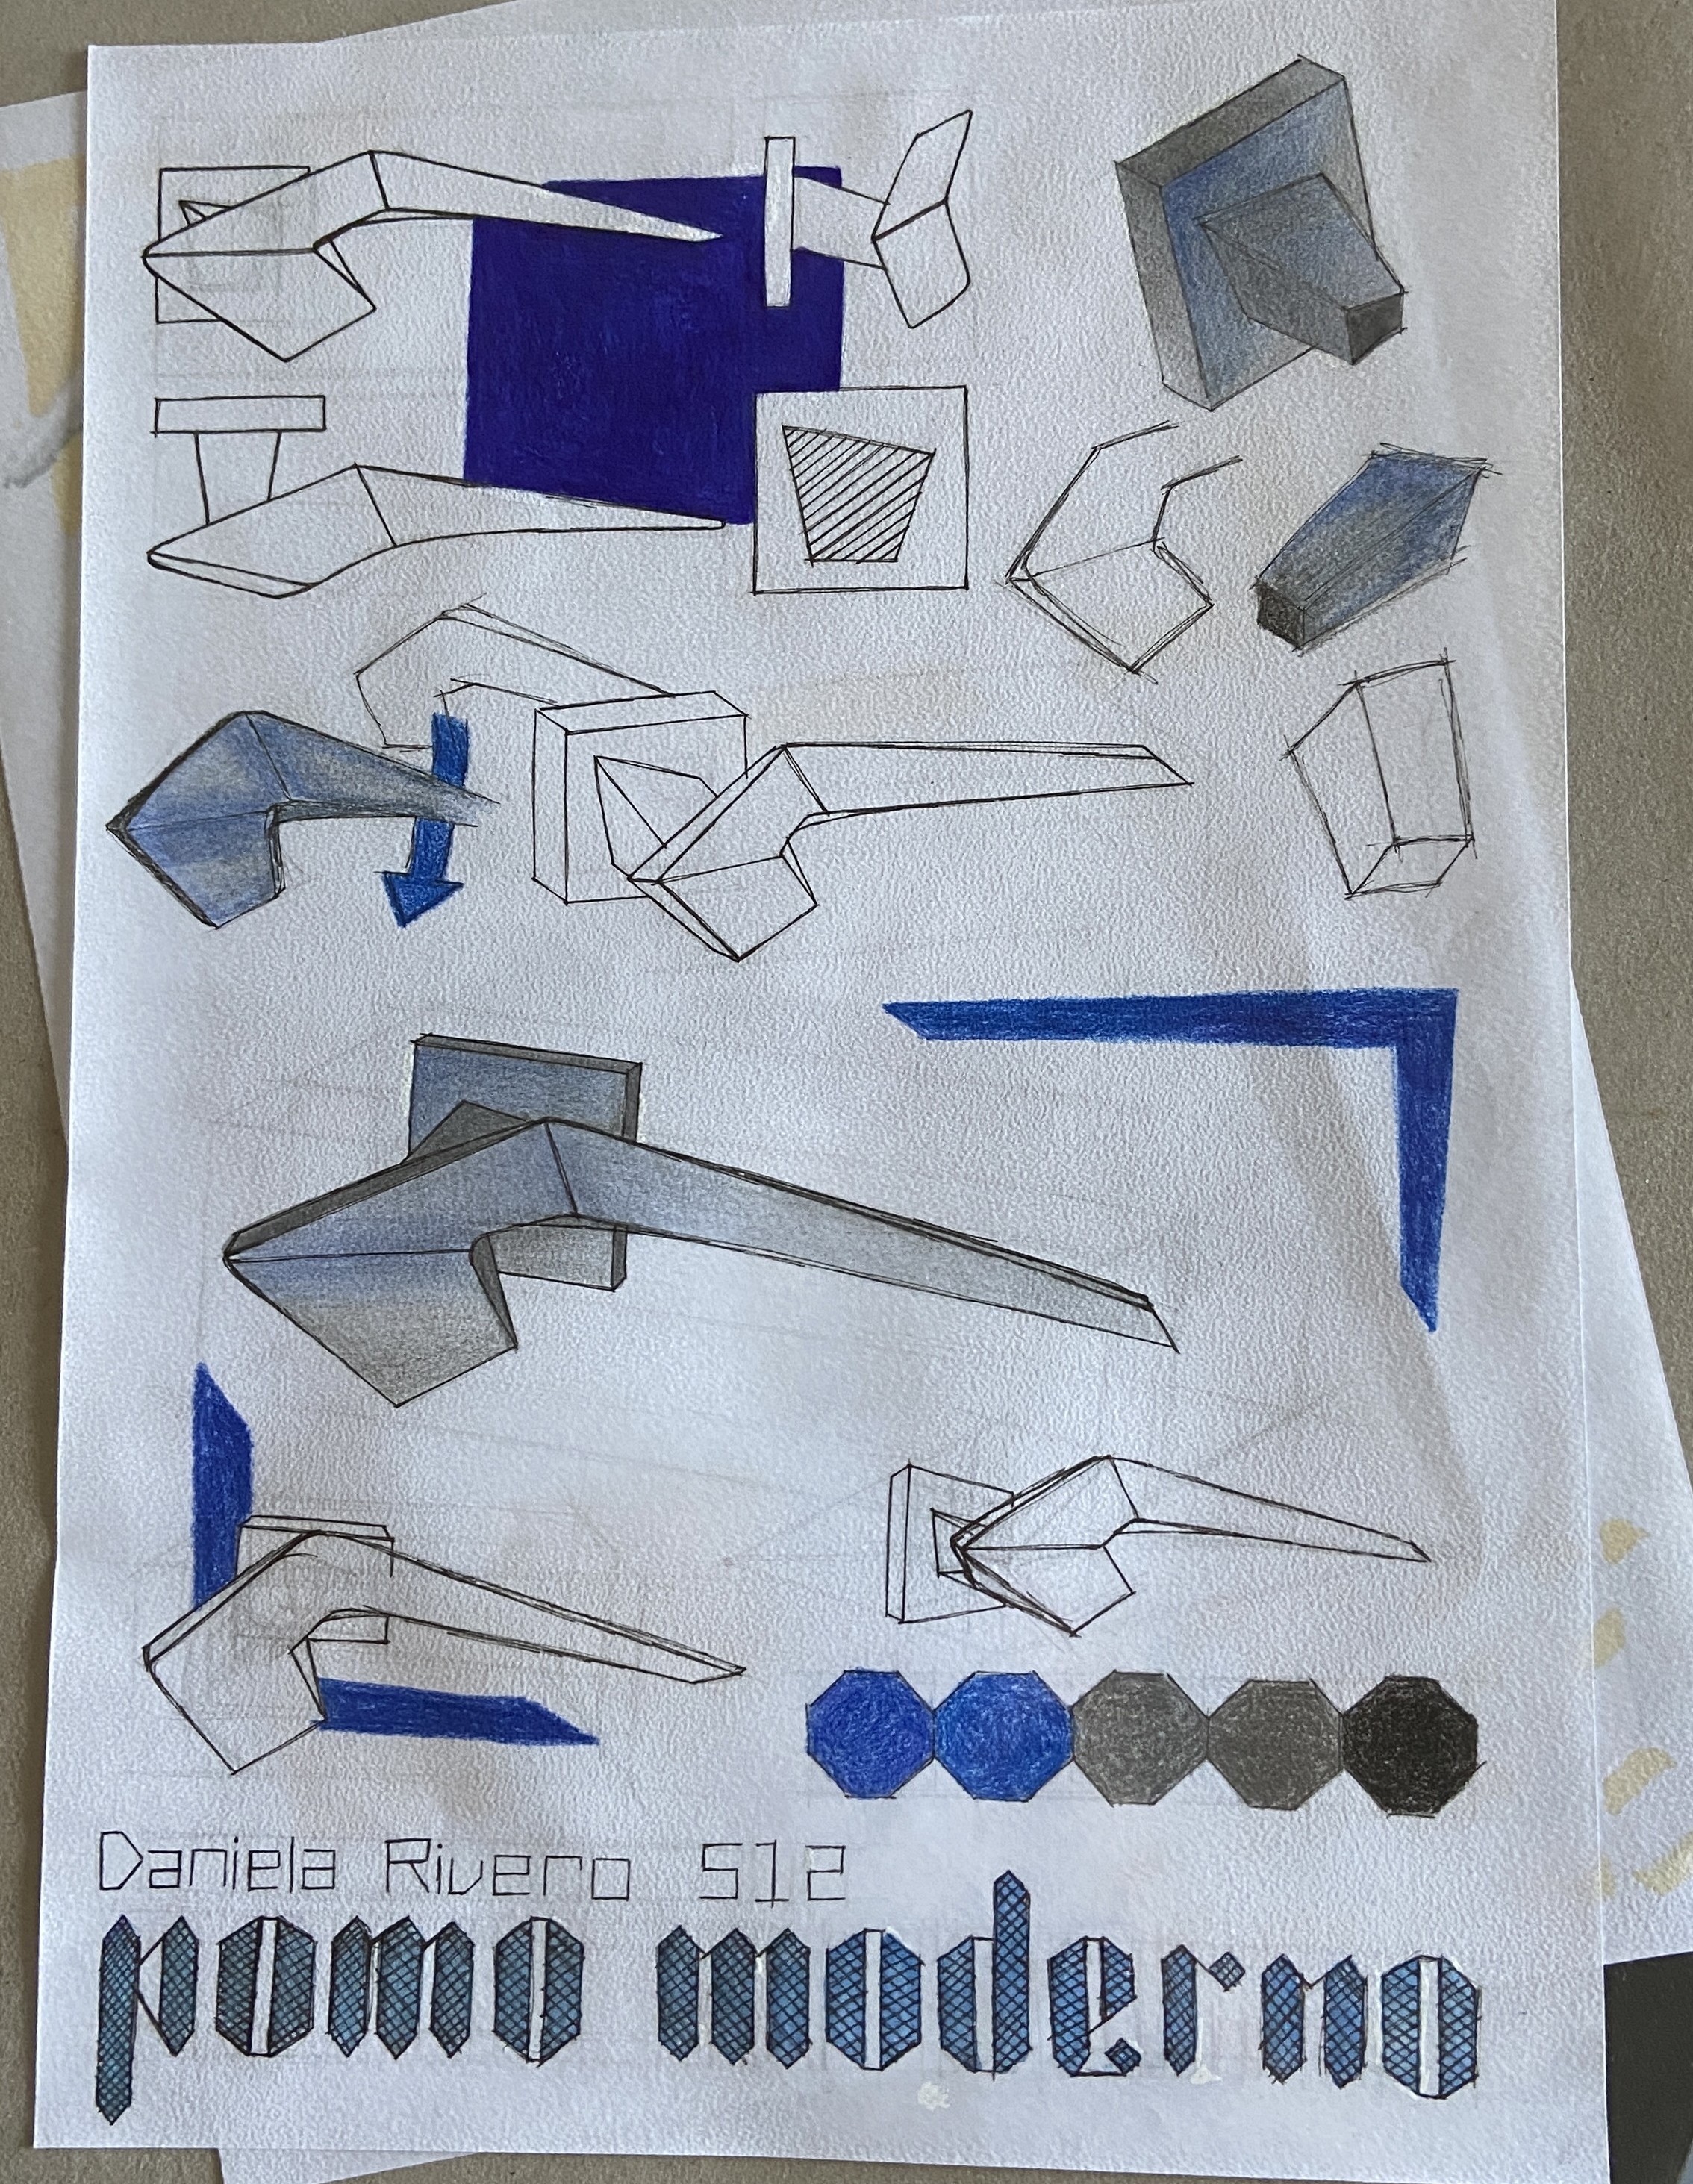 Daniela Rivero S12
pomo moderno